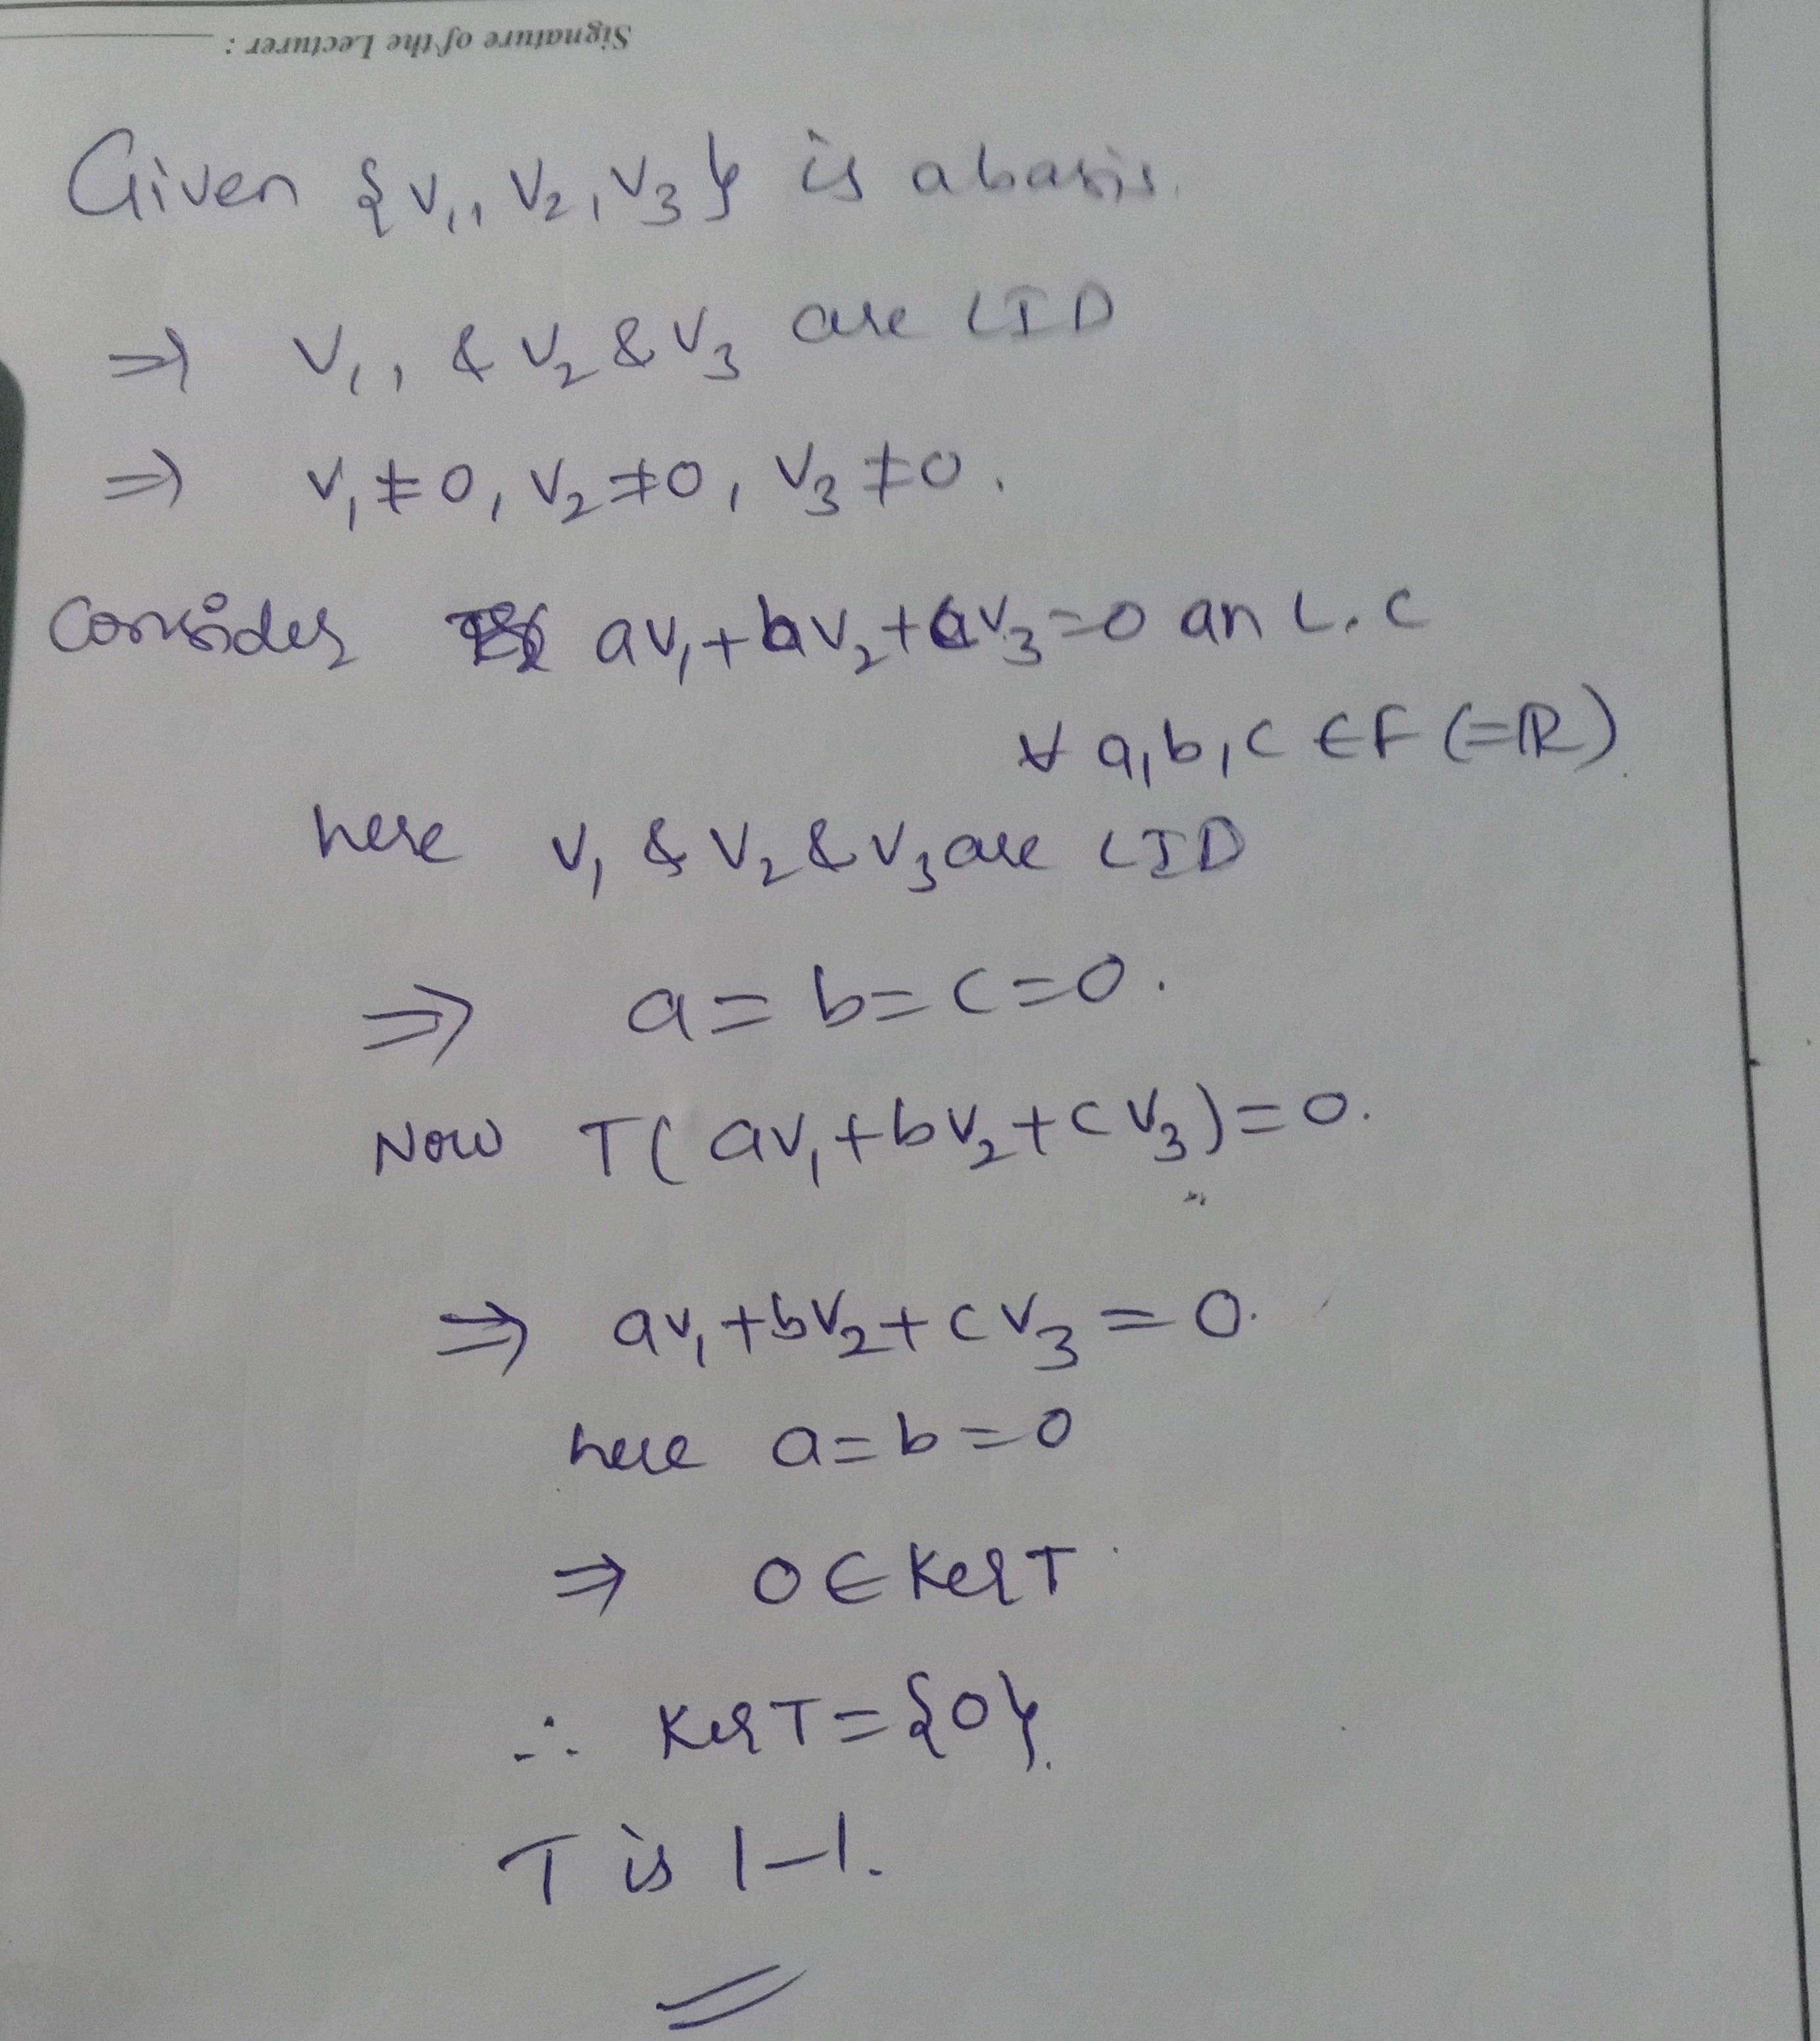 Signature of the Lecturer :
Given {v₁, v₂, v₃} is a basis.
⇒ v₁, & v₂ & v₃ are LID
⇒ v₁≠0, v₂≠0, v₃≠0.
Consider av₁+bv₂+cv₃=0 an L.C
∀ a,b,c ∈F (=ℝ).
here v₁ & v₂ & v₃ are LID
⇒ a=b=c=0.
Now T(av₁+bv₂+cv₃)=0.
⇒ av₁+bv₂+cv₃=0.
here a=b=0
⇒ 0∈KerT.
∴ KerT={0}.
T is 1-1.